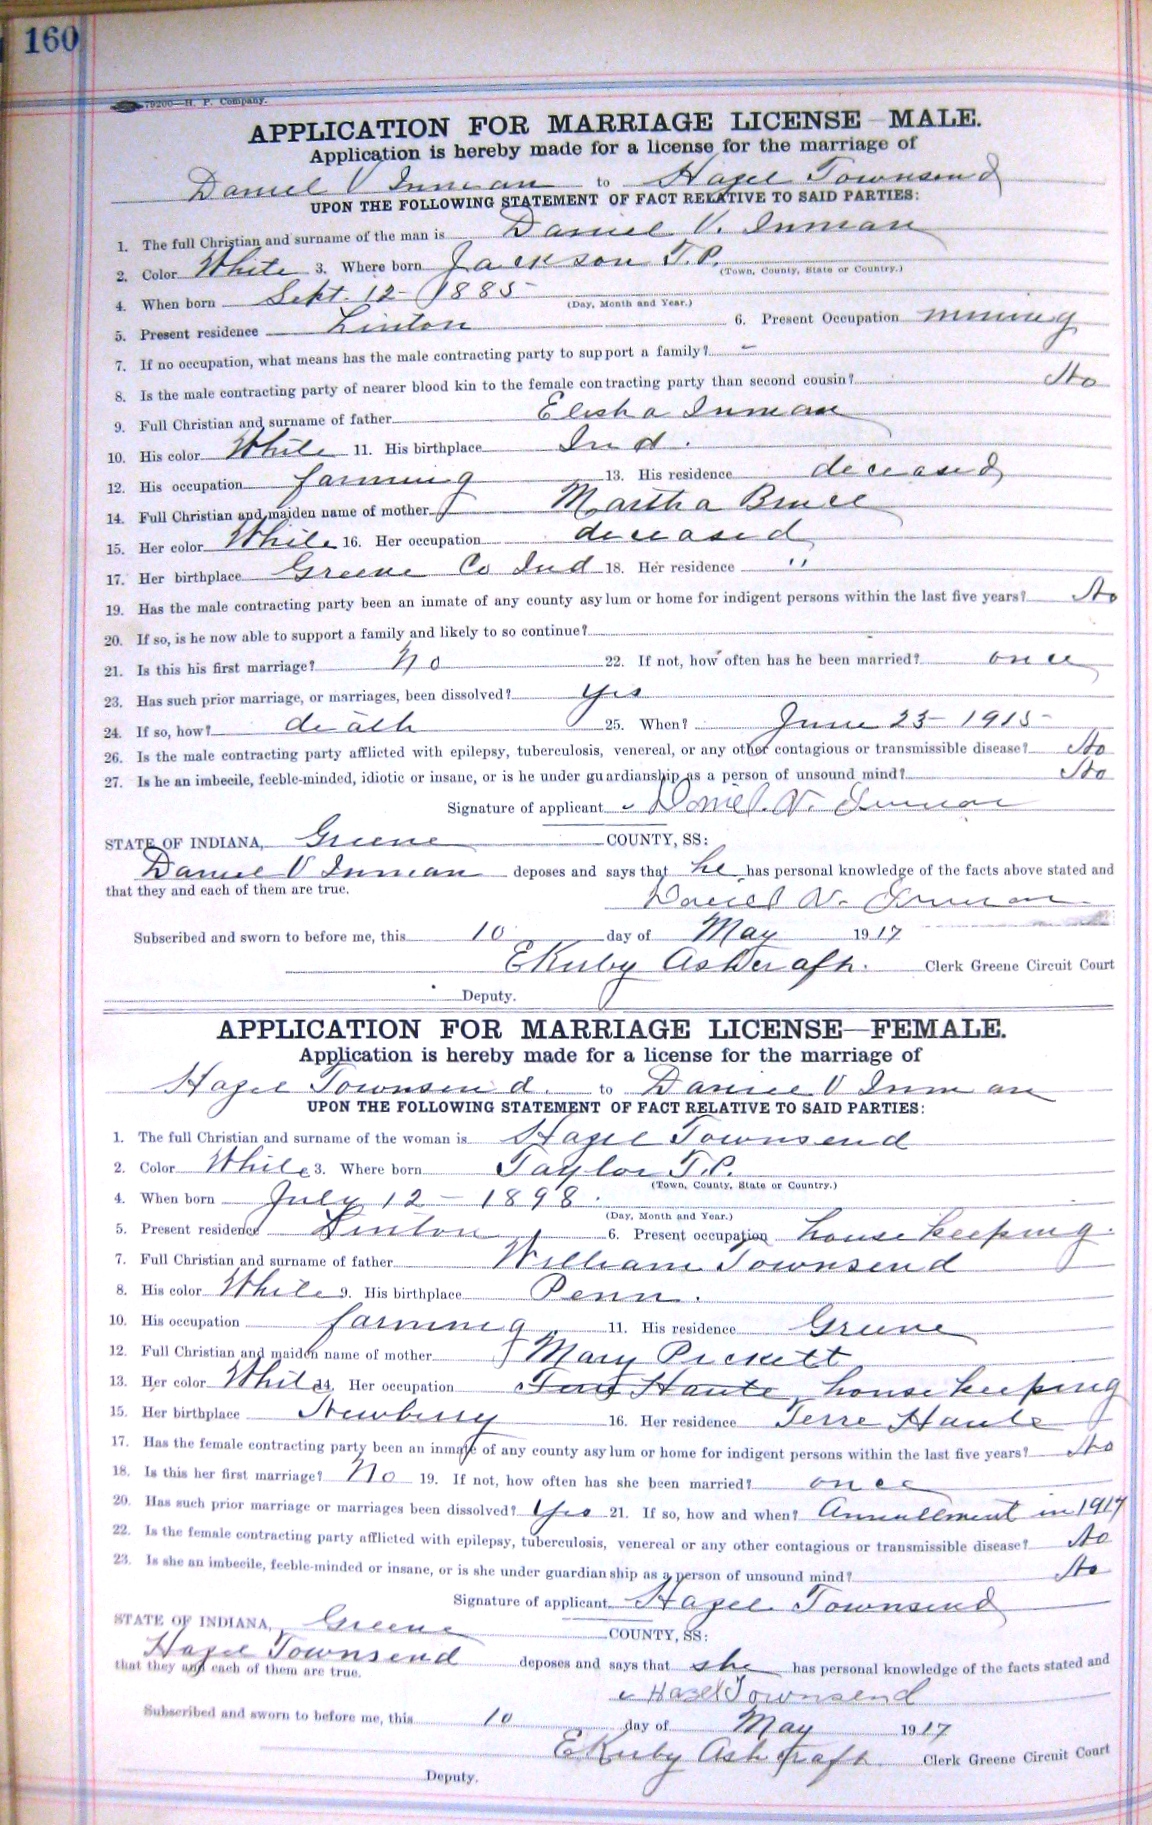 160
79200—H. P. Company.
APPLICATION FOR MARRIAGE LICENSE—MALE.
Application is hereby made for a license for the marriage of
Daniel V Inman to Hazel Townsend
UPON THE FOLLOWING STATEMENT OF FACT RELATIVE TO SAID PARTIES:
1. The full Christian and surname of the man is Daniel V. Inman
2. Color White 3. Where born Jackson T.P.
(Town, County, State or Country.)
4. When born Sept. 12 - 1885
(Day, Month and Year.)
5. Present residence Linton 6. Present Occupation mining
7. If no occupation, what means has the male contracting party to support a family? -
8. Is the male contracting party of nearer blood kin to the female contracting party than second cousin? No
9. Full Christian and surname of father Elisha Inman
10. His color White 11. His birthplace Ind.
12. His occupation farming 13. His residence deceased
14. Full Christian and maiden name of mother Martha Bruce
15. Her color White 16. Her occupation deceased
17. Her birthplace Greene Co Ind 18. Her residence "
19. Has the male contracting party been an inmate of any county asylum or home for indigent persons within the last five years? No
20. If so, is he now able to support a family and likely to so continue?
21. Is this his first marriage? No 22. If not, how often has he been married? once
23. Has such prior marriage, or marriages, been dissolved? yes
24. If so, how? death 25. When? June 23 - 1915
26. Is the male contracting party afflicted with epilepsy, tuberculosis, venereal, or any other contagious or transmissible disease? No
27. Is he an imbecile, feeble-minded, idiotic or insane, or is he under guardianship as a person of unsound mind? No
Signature of applicant Daniel V. Inman
STATE OF INDIANA, Greene COUNTY, SS:
Daniel V Inman deposes and says that he has personal knowledge of the facts above stated and
that they and each of them are true.
Daniel V. Inman
Subscribed and sworn to before me, this 10 day of May 1917
E Kirby Ashcraft. Clerk Greene Circuit Court
Deputy.
APPLICATION FOR MARRIAGE LICENSE—FEMALE.
Application is hereby made for a license for the marriage of
Hazel Townsend. to Daniel V Inman
UPON THE FOLLOWING STATEMENT OF FACT RELATIVE TO SAID PARTIES:
1. The full Christian and surname of the woman is Hazel Townsend
2. Color White 3. Where born Taylor T.P.
(Town, County, State or Country.)
4. When born July 12 - 1898.
(Day, Month and Year.)
5. Present residence Linton 6. Present occupation house keeping.
7. Full Christian and surname of father William Townsend
8. His color White 9. His birthplace Penn.
10. His occupation farming 11. His residence Greene
12. Full Christian and maiden name of mother Mary Pickett
13. Her color White 14. Her occupation Terre Haute, house keeping
15. Her birthplace Newberry 16. Her residence Terre Haute
17. Has the female contracting party been an inmate of any county asylum or home for indigent persons within the last five years? No
18. Is this her first marriage? No 19. If not, how often has she been married? once
20. Has such prior marriage or marriages been dissolved? Yes 21. If so, how and when? Annullment in 1917
22. Is the female contracting party afflicted with epilepsy, tuberculosis, venereal or any other contagious or transmissible disease? No
23. Is she an imbecile, feeble-minded or insane, or is she under guardianship as a person of unsound mind? No
Signature of applicant Hazel Townsend
STATE OF INDIANA, Greene COUNTY, SS:
Hazel Townsend deposes and says that she has personal knowledge of the facts stated and
that they and each of them are true.
Hazel Townsend
Subscribed and sworn to before me, this 10 day of May 1917
E Kirby Ashcraft Clerk Greene Circuit Court
Deputy.